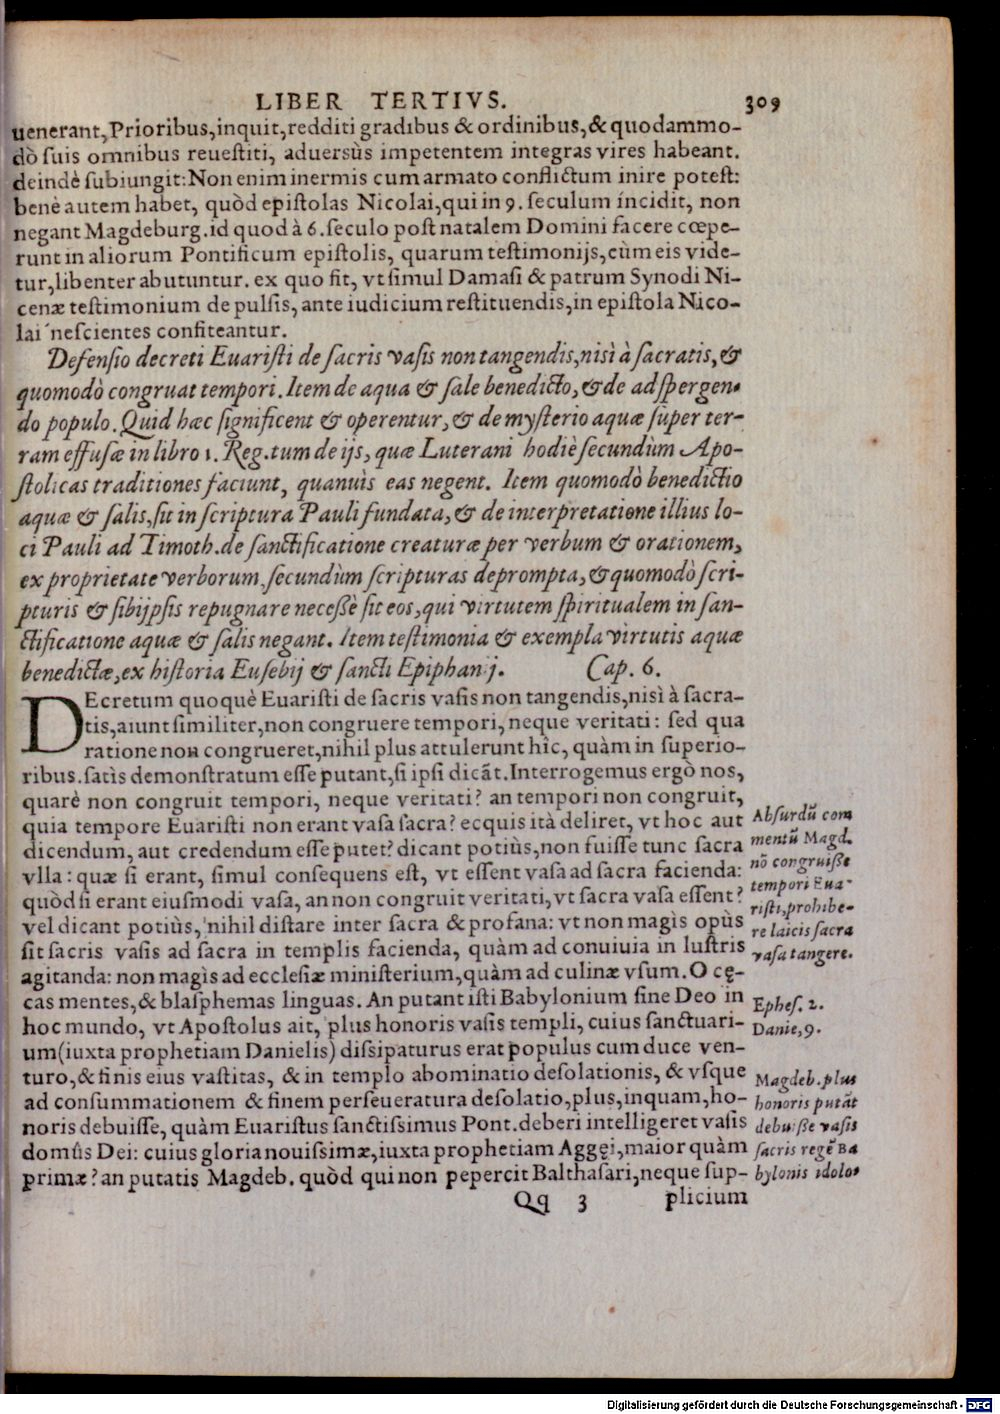 LIBER TERTIVS. 309
uenerant, Prioribus, inquit, redditi gradibus & ordinibus, & quodammo-
dò suis omnibus reuestiti, aduersùs impetentem integras vires habeant.
deindè subiungit: Non enim inermis cum armato conflictum inire potest:
benè autem habet, quòd epistolas Nicolai, qui in 9. seculum íncidit, non
negant Magdeburg. id quod à 6. seculo post natalem Domini facere cœpe-
runt in aliorum Pontificum epistolis, quarum testimonijs, cùm eis vide-
tur, libenter abutuntur. ex quo fit, vt simul Damasi & patrum Synodi Ni-
cenæ testimonium de pulsis, ante iudicium restituendis, in epistola Nico-
lai nescientes confiteantur.
Defensio decreti Euaristi de sacris vasis non tangendis, nisì à sacratis, &
quomodò congruat tempori. Item de aqua & sale benedicto, & de adspergen-
do populo. Quid hæc significent & operentur, & de mysterio aquæ super ter-
ram effusæ in libro 1. Reg. tum de ijs, quæ Luterani hodiè secundùm Apo-
stolicas traditiones faciunt, quanuìs eas negent. Item quomodò benedictio
aquæ & salis, sit in scriptura Pauli fundata, & de interpretatione illius lo-
ci Pauli ad Timoth. de sanctificatione creaturæ per verbum & orationem,
ex proprietate verborum, secundùm scripturas deprompta, & quomodò scri-
pturis & sibijpsis repugnare necessè sit eos, qui virtutem spiritualem in san-
ctificatione aquæ & salis negant. Item testimonia & exempla virtutis aquæ
benedictæ, ex historia Eusebij & sancti Epiphanij. Cap. 6.
DEcretum quoquè Euaristi de sacris vasis non tangendis, nisì à sacra-
tis, aiunt similiter, non congruere tempori, neque veritati: sed qua
ratione non congrueret, nihil plus attulerunt hîc, quàm in superio-
ribus. satìs demonstratum esse putant, si ipsi dicãt. Interrogemus ergò nos,
quarè non congruit tempori, neque veritati? an tempori non congruit,
quia tempore Euaristi non erant vasa sacra? ecquis ità deliret, vt hoc aut
dicendum, aut credendum esse putet? dicant potiùs, non fuisse tunc sacra
vlla: quæ si erant, simul consequens est, vt essent vasa ad sacra facienda:
quòd si erant eiusmodi vasa, an non congruit veritati, vt sacra vasa essent?
vel dicant potiùs, nihil distare inter sacra & profana: vt non magìs opùs
sit sacris vasis ad sacra in templis facienda, quàm ad conuiuia in lustris
agitanda: non magìs ad ecclesiæ ministerium, quàm ad culinæ vsum. O cę-
cas mentes, & blasphemas linguas. An putant isti Babylonium sine Deo in
hoc mundo, vt Apostolus ait, plus honoris vasis templi, cuius sanctuari-
um (iuxta prophetiam Danielis) dissipaturus erat populus cum duce ven-
turo, & finis eius vastitas, & in templo abominatio desolationis, & vsque
ad consummationem & finem perseueratura desolatio, plus, inquam, ho-
noris debuisse, quàm Euaristus sanctissimus Pont. deberi intelligeret vasis
domûs Dei: cuius gloria nouissimæ, iuxta prophetiam Aggęi, maior quàm
primæ? an putatis Magdeb. quòd qui non pepercit Balthasari, neque sup-
Qq 3 plicium
Absurdũ com
mentũ Magd.
nõ congruisse
tempori Eua-
risti, prohibe-
re laicis sacra
vasa tangere.
Ephes. 2.
Danie, 9.
Magdeb. plus
honoris putãt
debuisse vasis
sacris regẽ Ba
bylonis idolo-
Digitalisierung gefördert durch die Deutsche Forschungsgemeinschaft - DFG